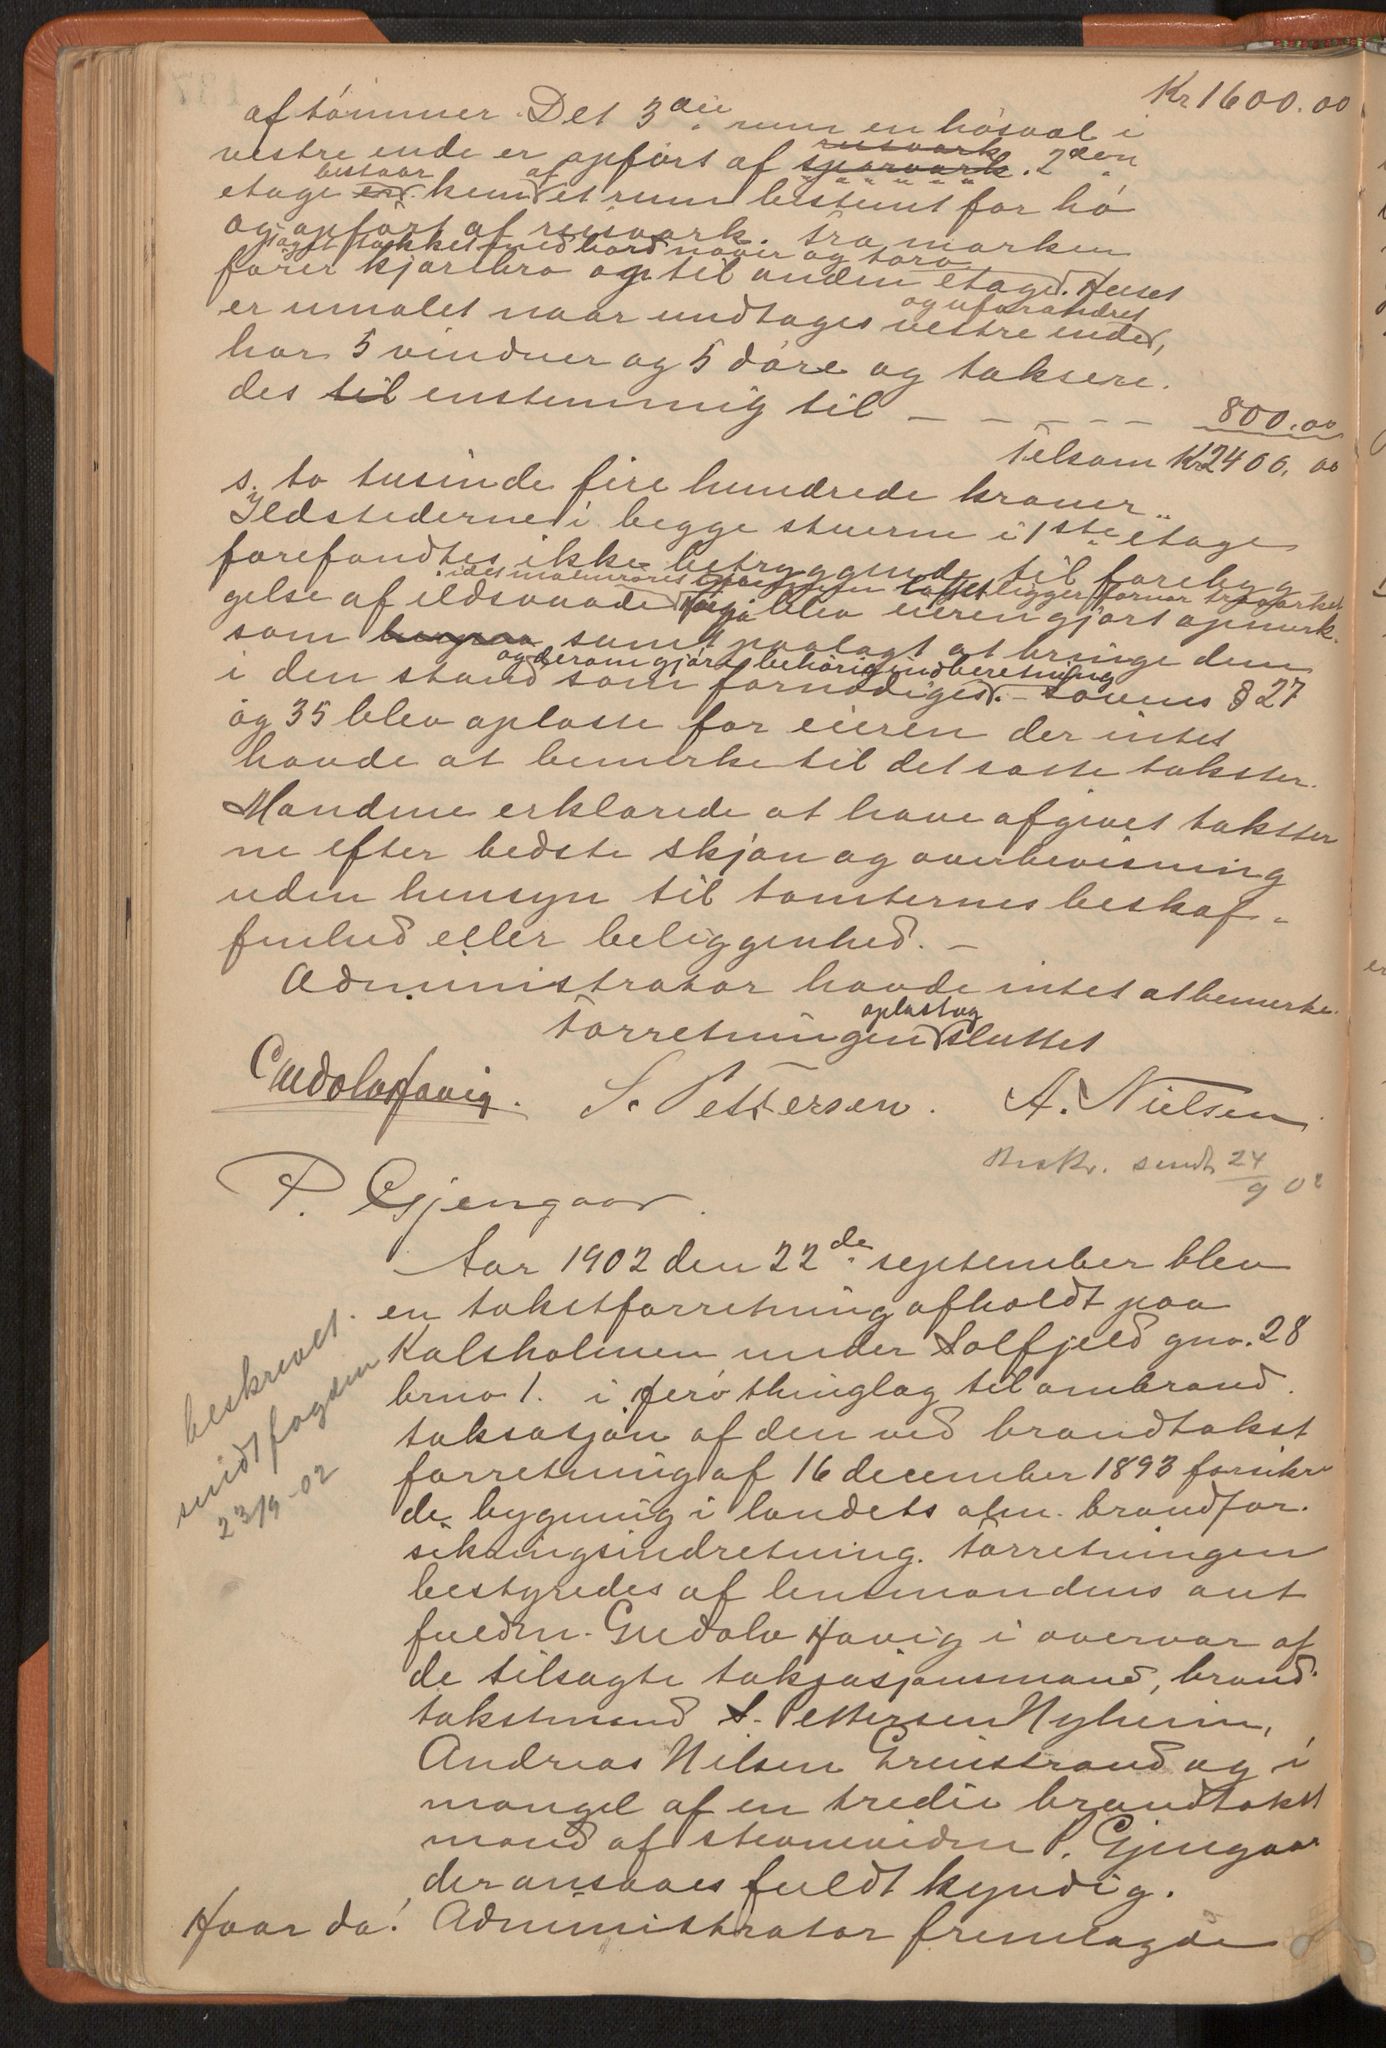 Kr 1600.00
af tømmer. Det 3die rum en høsval i
vestre ende er opført af sparvark reisvark. 2den
etage er bestaar kun af et rum bestemt for hø
og opført af reisvark. Fra marken
taget tækket med bord næver og torv
fører kjørebro op til anden etage. Huset
er umalet naar undtages vestre ende, og uforandret
har 5 vinduer og 5 døre og taksere-
des til enstemmig til — — — — — 800.00
Tilsam Kr 2400.00
s. to tusinde fire hundrede kroner „
Ildstederne i begge stuerne i 1ste etage
forefandtes ikke betryggende til forebyg
idet murrøret loftet ligger forvar træværket
gelse af ildsvaade blev eieren gjort opmerk-
som samt paalagt at bringe dem
og derom gjøre behørig indberetning
i den stand som fornødiges. — Lovens § 27
og 35 blev oplæste for eieren der intet
havde at bemerke til det satte takster.
Mændene erklærede at have afgivet takster
ne efter bedste skjøn og overbevisning
uden hensyn til tomternes beskaf-
fenhed eller beliggenhed. —
Administrator havde intet at bemerke.
Forretningen oplæst og sluttet
Gudolv Havig. S. Pettersen. A. Nielsen
Beskr. sendt 24/9 02
P. Gjengaar.
Aar 1902 den 22de september blev
en takstforretning afholdt paa
Kalsholmen under Solfjeld gno. 28
brno 1. i Herø thinglag til ombrand-
taksasjon af den ved brandtakst
forretning af 16 december 1893 forsikre
de bygning i landets alm. brandfor-
sikringsindretning. Forretningen
bestyredes af lensmandens aut
fuldm. Gudolv Havig i overvær af
de tilsagte taksasjonsmænd, brand-
takstmænd S. Pettersen Nyheim,
Andreas Nilsen Grinstrand og i
mangel af en tredie brandtakst
mand af stevnevidne P. Gjengaar
der ansaaes fuldt kyndig.
Hvor da! Administrator fremlagde
beskrevet.
sendt fogden
23/9-02